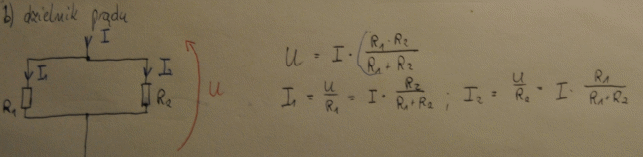 b) dzielnik prądu
I
I₁ I₂
R₁ R₂ U
U = I · (R₁ · R₂ / R₁ + R₂
I₁ = U/R₁ = I · R₂ / R₁ + R₂ ; I₂ = U/R₂ = I · R₁ / R₁ + R₂